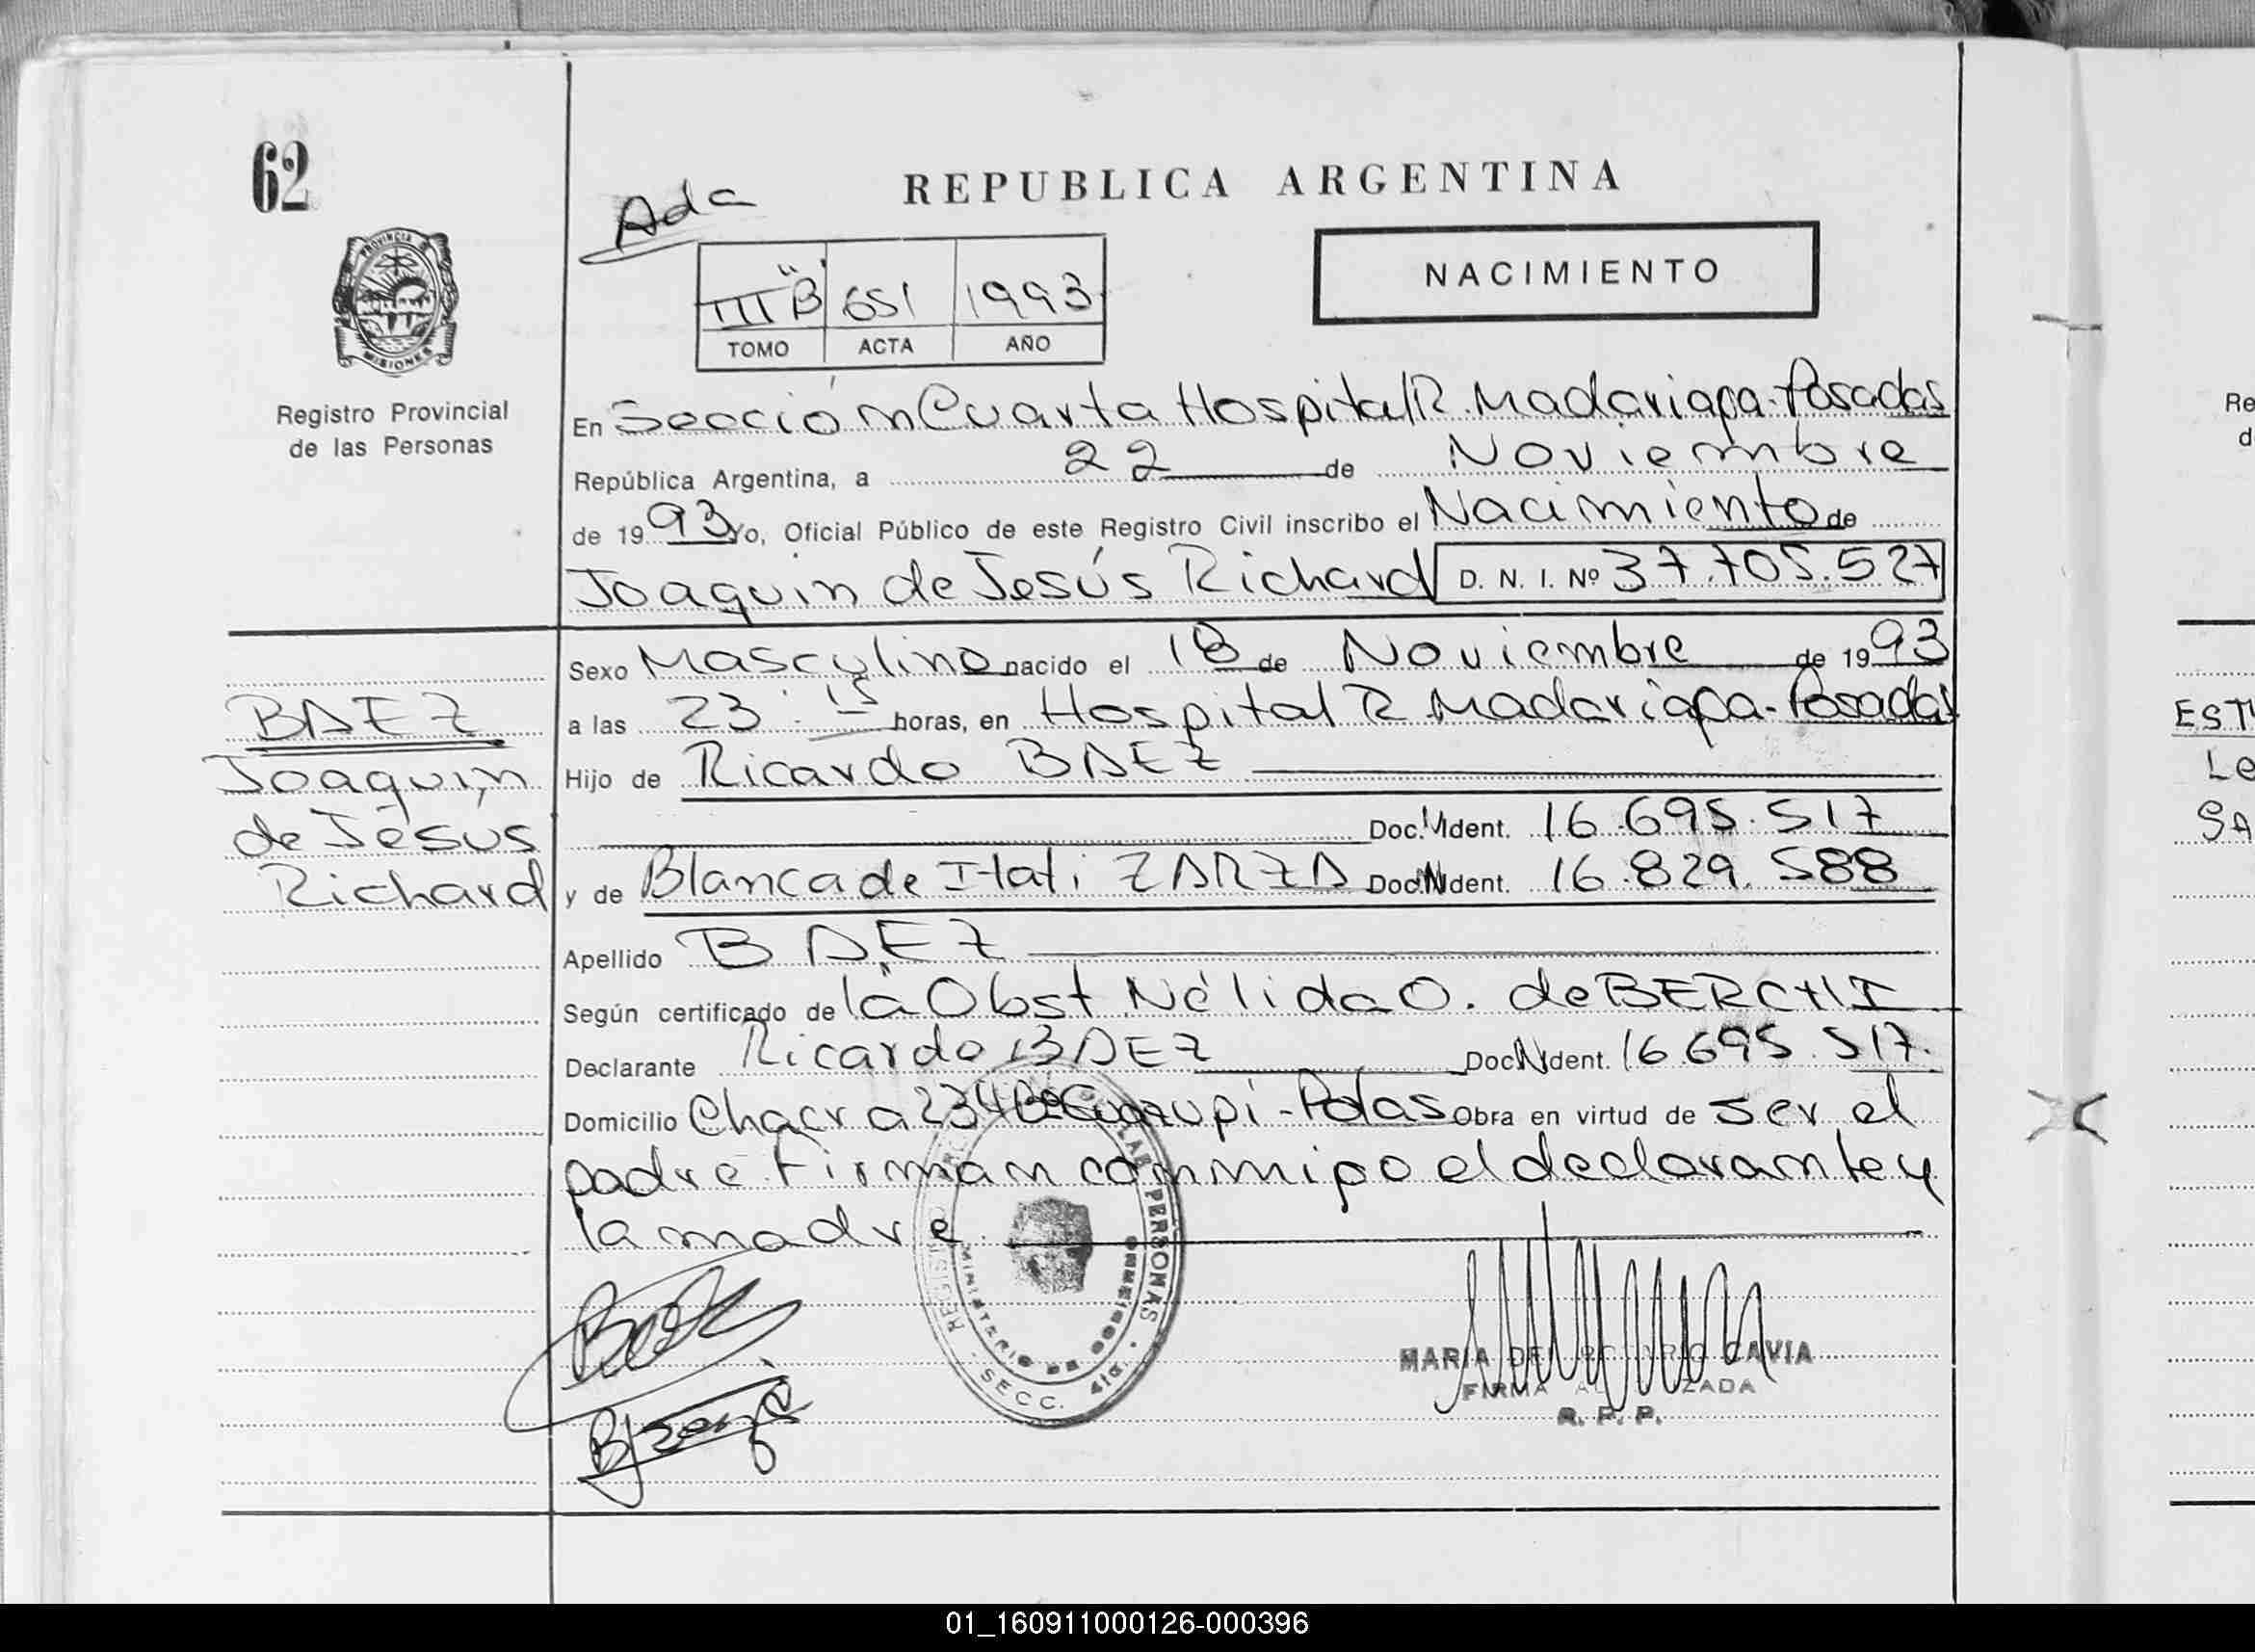 62
REPUBLICA ARGENTINA
Ada
NACIMIENTO
III "B" 651 1993
TOMO ACTA AÑO
PROVINCIA DE MISIONES
Registro Provincial
de las Personas
En Sección Cuarta Hospital R. Madariaga-Posadas
República Argentina, a 22 de Noviembre
de 1993 Yo, Oficial Público de este Registro Civil inscribo el Nacimiento de
Joaquin de Jesús Richard D. N. I. Nº 37.705.527
Sexo Masculino nacido el 18 de Noviembre de 1993
a las 23:15 horas, en Hospital R. Madariaga-Posadas
Hijo de Ricardo BAEZ
Doc. N Ident. 16.695.517
y de Blanca de Itati ZARZA Doc. N Ident. 16.829.588
Apellido BAEZ
Según certificado de la Obst. Nélida O. de BERCHI
Declarante Ricardo BAEZ Doc. N Ident. 16.695.517.
Domicilio Chacra 234 Bº Guazupi-Pdas Obra en virtud de ser el
padre. Firman conmigo el declarante y
la madre.
BAEZ
Joaquin
de Jesús
Richard
REGISTRO PERSONAS
MINISTERIO DE GOBIERNO
SECC. 4ta.
MARIA DEL ROSARIO CAVIA
FIRMA AUTORIZADA
R. P. P.
Re
d
EST
Le
SA
01_160911000126-000396